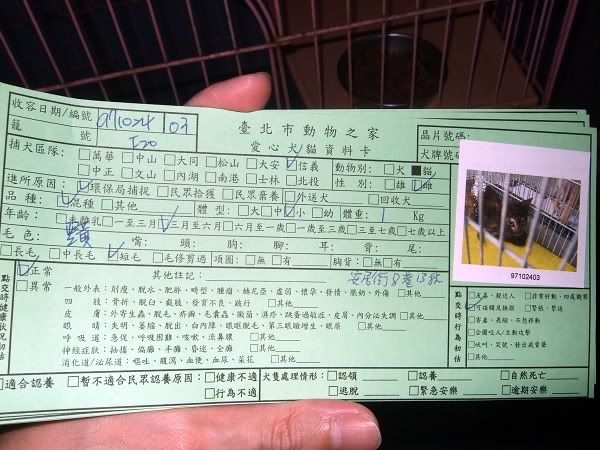 收容日期/編號 971024 03
臺北市動物之家
晶片號碼:
籠 號 I20
愛心犬/貓資料卡
犬牌號碼
捕犬區隊: □萬華 □中山 □大同 □松山 □大安 ☑信義 動物別: □犬 ■貓
□中正 □文山 □內湖 □南港 □士林 □北投 性 別: □雄 ☑雌
進所原因: ☑環保局捕捉 □民眾拾獲 □民眾棄養 □外送犬 □回收犬
品種: ☑混種 □其他 體 型: □大 □中 ☑小 □幼 體重: 1 Kg
年齡: □未離乳 □一至三月 ☑三月至六月 □六月至一歲 □一歲至三歲 □三至七歲 □七歲以上
毛色: 嘴: 頭: 胸: 腳: 耳: 背: 尾:
□長毛 □中長毛 ☑短毛 □毛修剪過 項圈: □無 □有 胸背: □無 □有
97102403
點交時健康狀況初估
☑正常
□異常
其他註記:
一般外表: 削瘦、脫水、肥胖、畸型、腫瘤、赫尼亞、虛弱、懷孕、發情、脹奶、外傷 □其他
四 肢: 骨折、脫臼、截肢、發育不良、跛行 □其他
皮 膚: 外寄生蟲、脫毛、疥癬、毛囊蟲、黴菌、濕疹、跳蚤過敏症、皮屑、內分泌失調 □其他
眼 睛: 失明、萎縮、脫出、白內障、眼眶脫毛、第三眼瞼增生、眼屎 □其他
呼 吸 道: 急促、呼吸困難、咳嗽、流鼻膿 □其他
神經症狀: 抽搐、偏癱、半癱、昏迷、全癱 □其他
消化道/泌尿道: 嘔吐、腹瀉、血便、血尿、菜花 □其他
點交時行為初估
□友善、親近人 □非常好動、四處觀察
☑可碰觸及撫摸 □緊張、緊迫
□害羞、畏縮、不想移動
□企圖咬人/主動攻擊
□吠叫、哭號、發出威脅聲
□其他
□適合認養 □暫不適合民眾認養原因: □健康不適 犬隻處理情形: □認領 □認養 □自然死亡
□行為不適 □逃脫 □緊急安樂 □逾期安樂